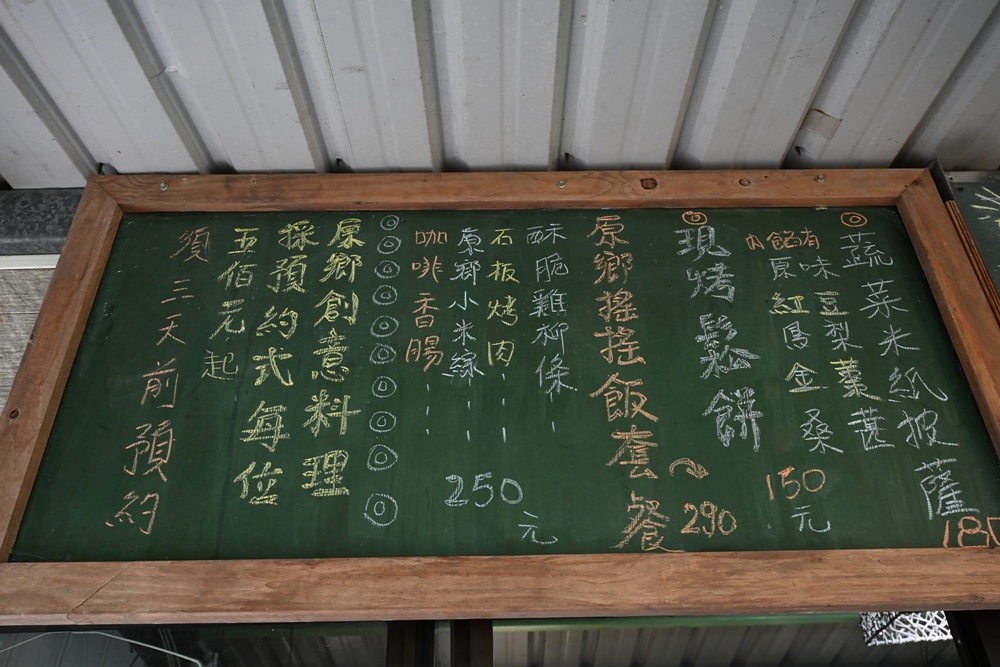 蔬菜米紙披薩 180
現烤鬆餅
內餡有
原味
紅豆
鳳梨
金
桑葚
150元
原鄉搖搖飯套餐 290
酥脆雞柳條
石板烤肉
原鄉小米線
咖啡香腸
250元
原鄉創意料理
採預約式每位
五佰元起
須三天前預約